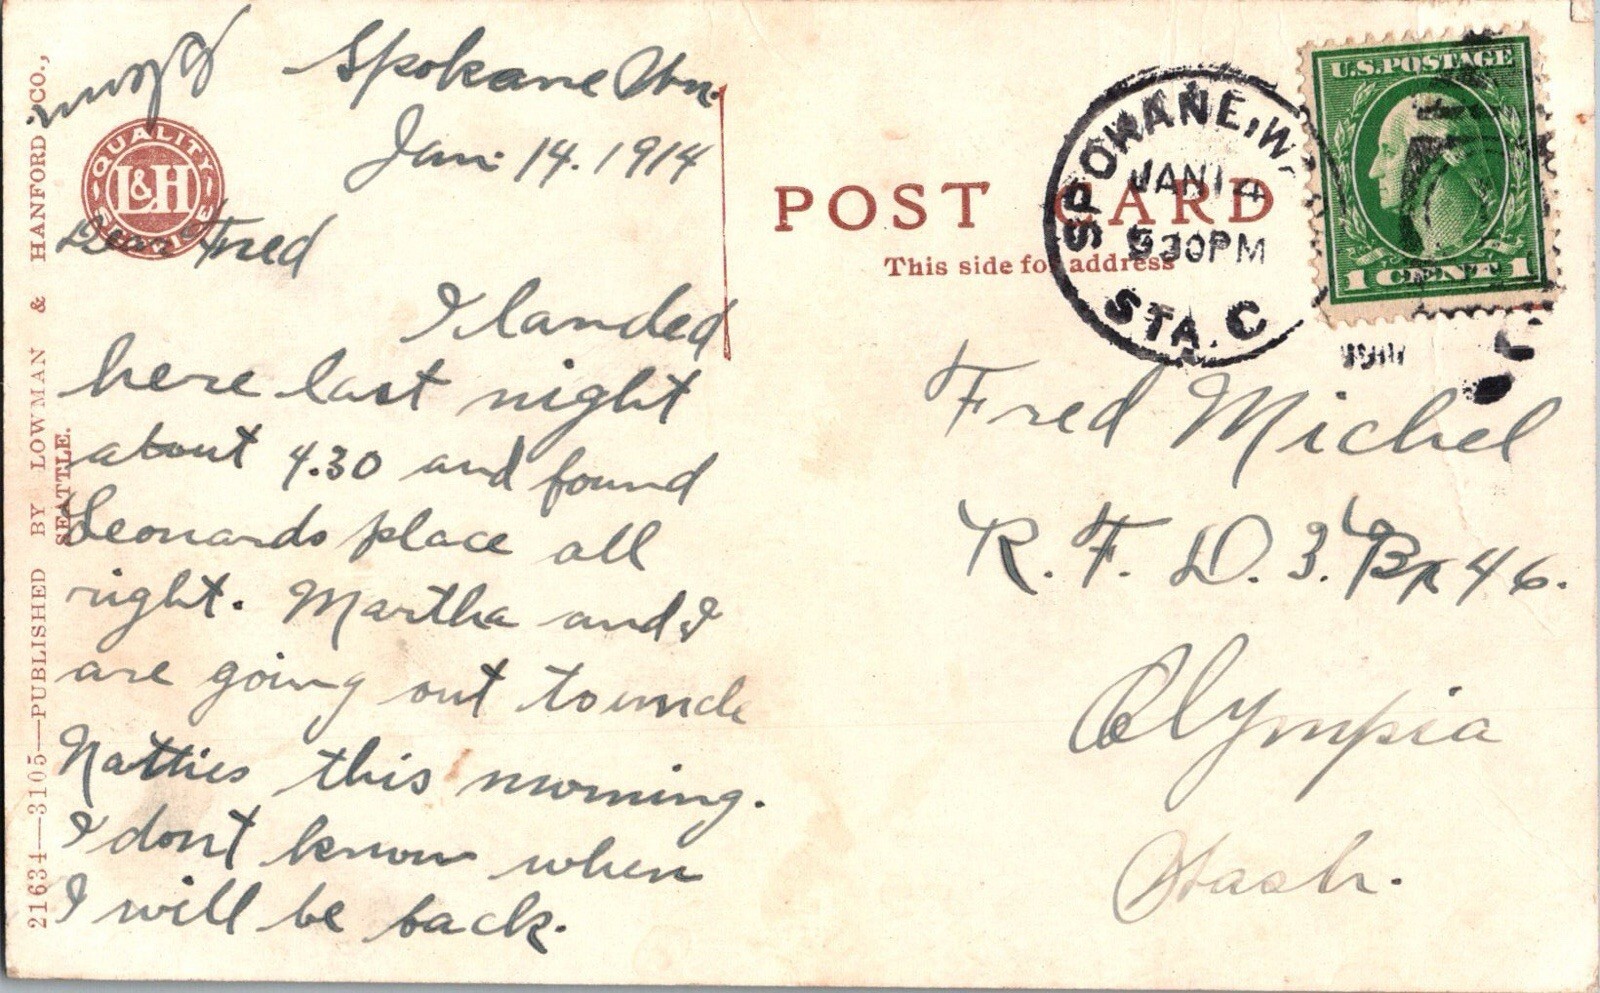 Spokane Wn.
Jan. 14. 1914
Dear Fred
I landed
here last night
about 4.30 and found
Leonards place all
right. Martha and I
are going out to uncle
Natties this morning.
I dont know when
I will be back.
QUALITY
L&H
SERVICE
21634—3105—PUBLISHED BY LOWMAN & HANFORD CO.,
SEATTLE.
POST CARD
This side for address
SPOKANE, W
JAN 14
530PM
STA. C
U.S. POSTAGE
1 CENT 1
Fred Michel
R. F. D. 3. Bx 46.
Olympia
Wash.